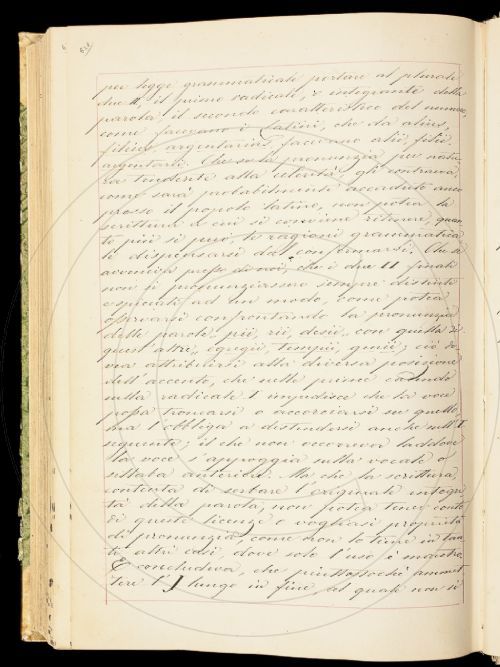 per legge grammaticale portare al plurale
due II, il primo radicale, e integrante della
parola, il secondo caratteristico del numero,
come facevano i Latini, che da alius,
filius, argentarius, facevano alii, filii,
argentarii. Che se la pronunzia, per natu
ra tendente alla celerità, gli contraeva,
come sarà probabilmente accaduto anco
presso il popolo latino, non potea la
scrittura a cui si conviene ritenere, quan
to più si può, le ragioni grammatica
li dispensarsi dal conformarsi. Che se
avveniva presso di noi, che i due II finali
non si pronunziassero sempre distinti
e spiccati ad un modo, come potea
osservarsi confrontando la pronunzia
delle parole pii, rii, desii, con quella di
quest'altre, egregii, tempii, ; ciò do
vea attribuirsi alla diversa posizione
dell'accento, che nelle prime cadendo
sulla radicale I impedisce che la voce
possa troncarsi o accorciarsi su quello,
ma l'obbliga a distendersi anche sull'I
seguente; il che non occorreva laddove
la voce s'appoggia sulla vocale o
sillaba anteriore. Ma che la scrittura,
contenta di serbare l'originale integri
tà della parola, non potea tener conto
di queste licenze o vogliansi proprietà
di pronunzia, come non lo tiene in tan
ti altri casi, dove solo l'uso è maestro.
E concludeva, che piuttostochè ammet
tere l'J lungo in fine, al quale non si